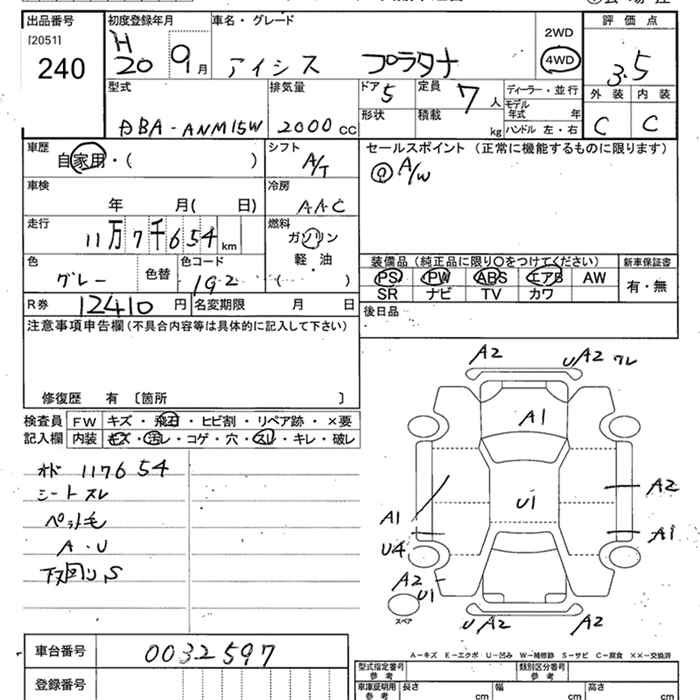 出品番号 初度登録年月 車名・グレード 評価点
[2051]
240
H 20 9月 アイシス プラタナ 2WD 4WD 3.5
外装 内装
C C
型式 排気量 ドア 5 定員 7人 ディーラー・並行
DBA-ANM15W 2000cc 形状 積載 kg モデル年式 年
ハンドル 左・右
車歴 シフト セールスポイント (正常に機能するものに限ります)
自家用・( ) A/T
A/W
車検 冷房
年 月( 日) AAC
走行 燃料
11万7千654km ガソリン
軽油
( )
色 色替 色コード 装備品 (純正品に限り○をつけてください) 新車保証書
グレー 1G2 PS PW ABS エアB AW 有・無
SR ナビ TV カワ
R券 12410円 名変期限 月 日 後日品
注意事項申告欄(不具合内容等は具体的に記入して下さい)
修復歴 有 〔箇所 〕
検査員 FW キズ・飛石・ヒビ割・リペア跡・×要
記入欄 内装 キズ・汚レ・コゲ・穴・スレ・キレ・破レ
オド 117654
シートスレ
ペット毛
A・U
下回りS
A2 U A2 ワレ
A1
U1
A2
A1 A1
U4
A2
U1
スペア
U A2 A2
A-キズ E-エクボ U-凹み W-補修跡 S-サビ C-腐食 ××-交換済
車台番号 0032597
型式指定番号 参考 類別区分番号 参考
登録番号 車庫証明用 参考 長さ cm 幅 cm 高さ cm